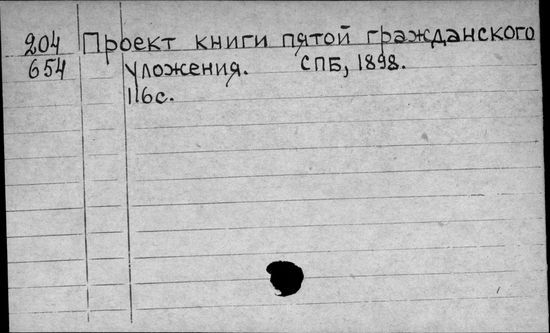 204 Проект книги пятой гражданского
654 уложения. СПБ, 1898.
116с.